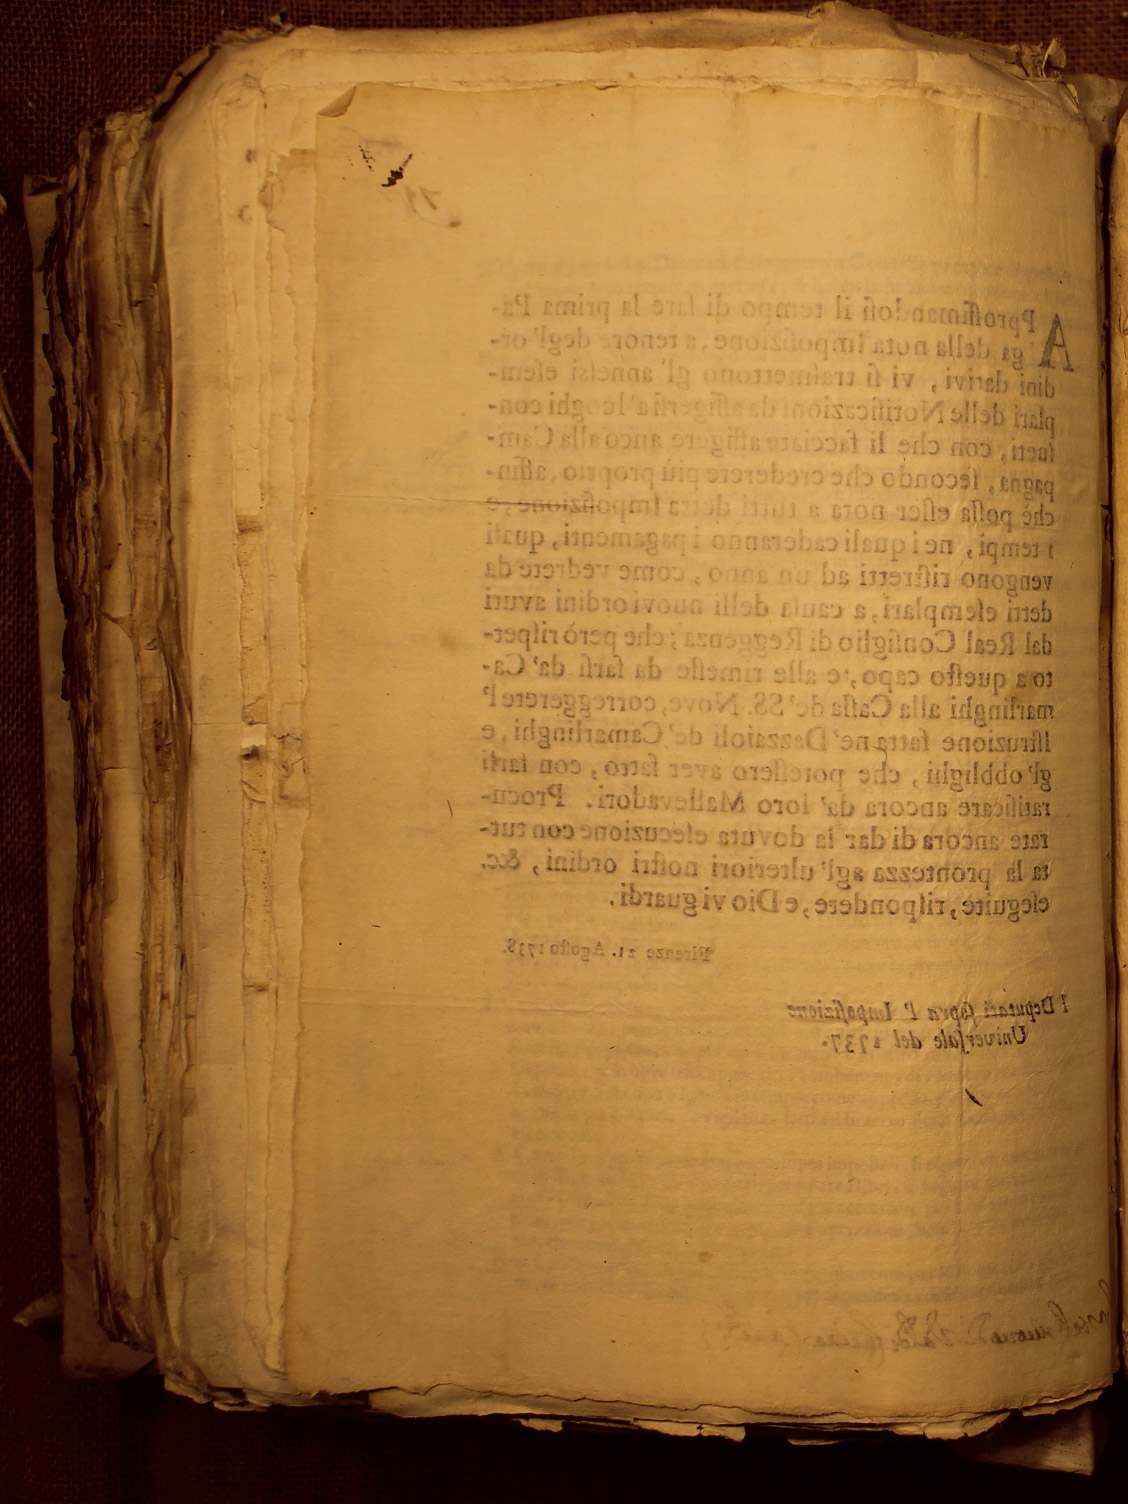 APprossimandosi il tempo di fare la prima Pa-
ga della nota Imposizione, a tenore degl'or-
dini dativi, vi si trasmettono gl' annessi esem-
plari delle Notificazioni da affigersi a' luoghi con-
sueti, con che li facciate affigere anco alla Cam-
pagna, secondo che crederete più proprio, affin-
chè possa esser nota a tutti detta Imposizione, e
i tempi, nei quali caderanno i pagamenti, quali
vengono ristretti ad un anno, come vedrete da
detti esemplari, a causa delli nuovi ordini avuti
dal Real Consiglio di Reggenza; che però rispet-
to a questo capo, e alle rimesse da farsi da' Ca-
marlinghi alla Cassa de' SS. Nove, correggerete l'
Istruzione fatta ne' Dazzaioli de' Camarlinghi, e
gl'obblighi, che potessero aver fatto, con farsi
ratificare ancora da' loro Mallevadori. Procu-
rate ancora di dar la dovuta esecuzione con tut-
ta la prontezza agl' ulteriori nostri ordini, &c.
eseguite, rispondete, e Dio vi guardi.
Firenze 21. Agosto 1738.
I Deputati sopra l' Imposizione
Universale del 1737.